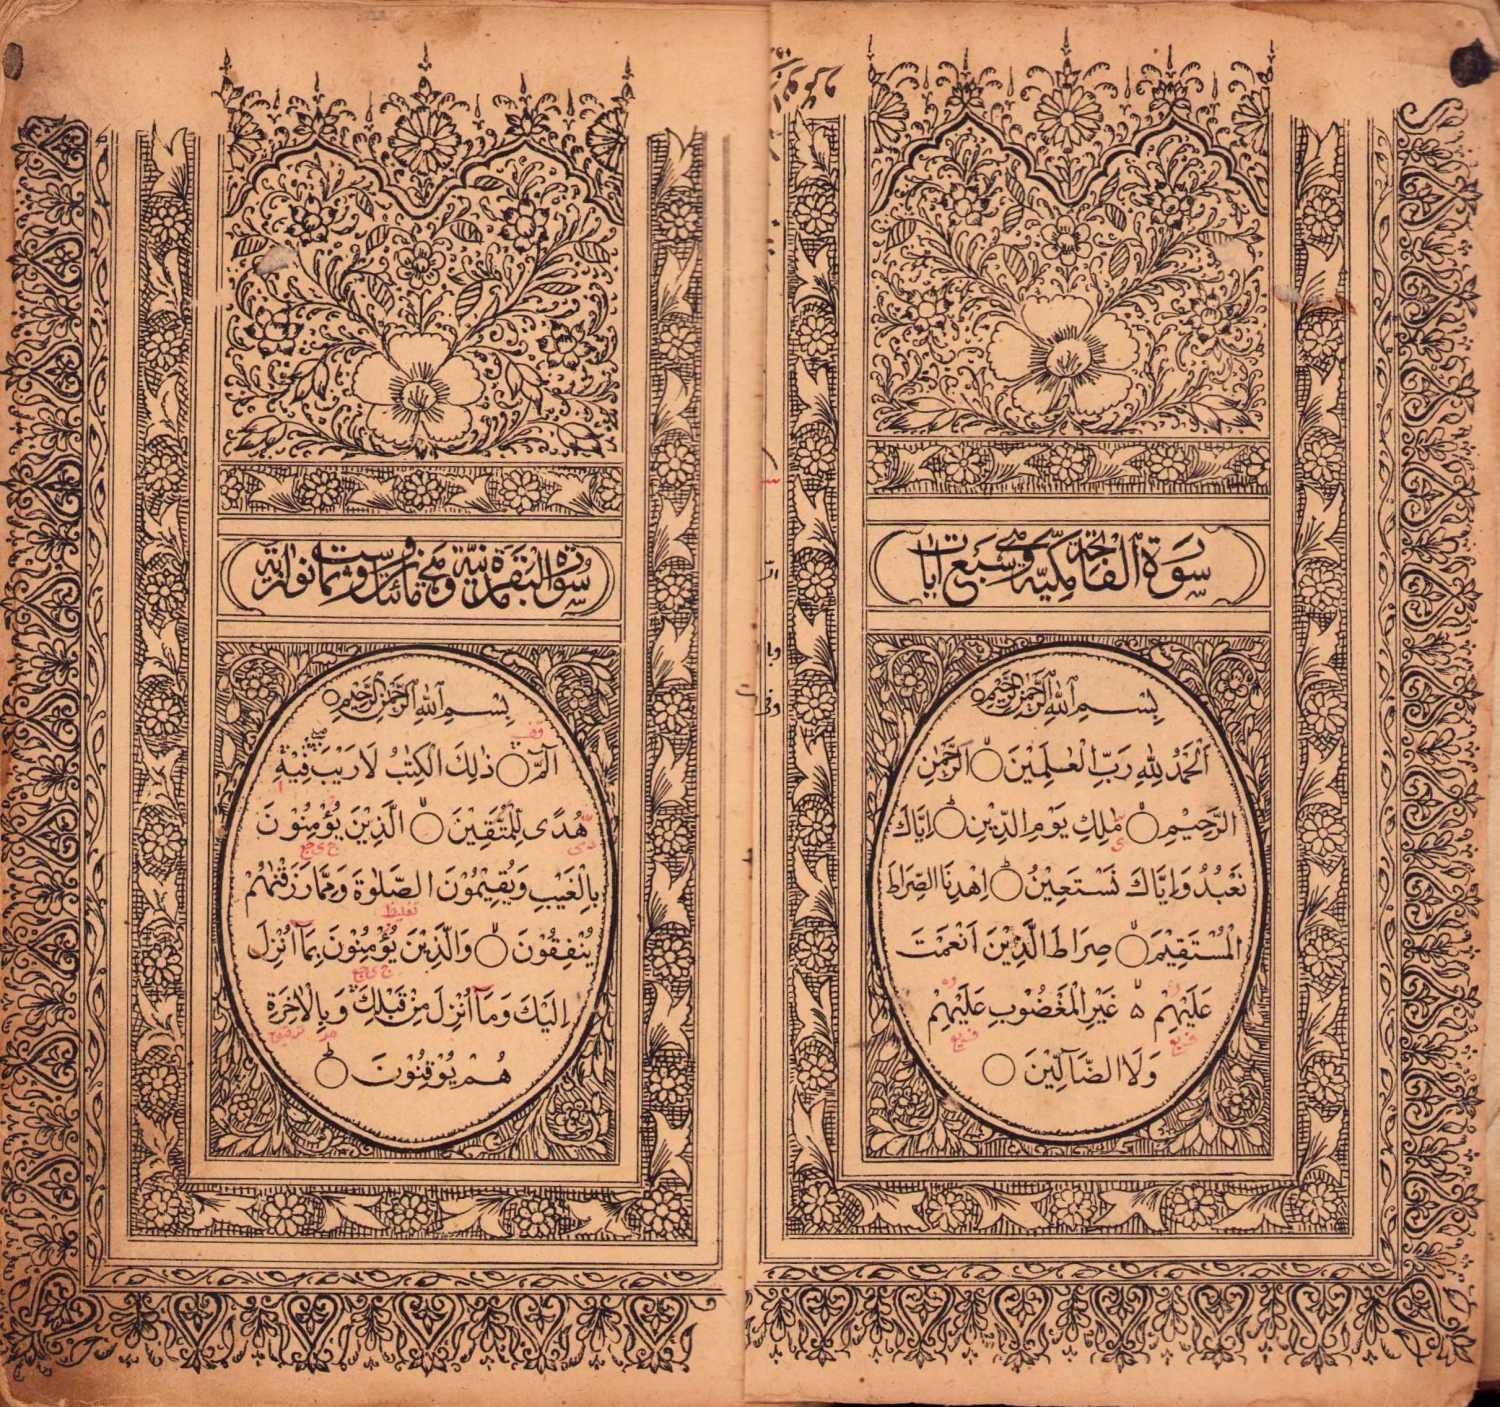 سورة الفاتحة مكية وهي سبع آيات
بِسْمِ اللهِ الرَّحْمٰنِ الرَّحِيْمِ
اَلْحَمْدُ لِلّٰهِ رَبِّ الْعٰلَمِيْنَ الرَّحْمٰنِ
الرَّحِيْمِ مٰلِكِ يَوْمِ الدِّيْنِ اِيَّاكَ
نَعْبُدُ وَاِيَّاكَ نَسْتَعِيْنُ اِهْدِنَا الصِّرَاطَ
الْمُسْتَقِيْمَ صِرَاطَ الَّذِيْنَ اَنْعَمْتَ
عَلَيْهِمْ غَيْرِ الْمَغْضُوْبِ عَلَيْهِمْ
وَلَا الضَّآلِّيْنَ
سورة البقرة مدنية وهي مائتان وست وثمانون آية
بِسْمِ اللهِ الرَّحْمٰنِ الرَّحِيْمِ
الٓمّٓ ذٰلِكَ الْكِتٰبُ لَا رَيْبَ فِيْهِ
هُدًى لِلْمُتَّقِيْنَ الَّذِيْنَ يُؤْمِنُوْنَ
بِالْغَيْبِ وَيُقِيْمُوْنَ الصَّلٰوةَ وَمِمَّا رَزَقْنٰهُمْ
يُنْفِقُوْنَ وَالَّذِيْنَ يُؤْمِنُوْنَ بِمَآ اُنْزِلَ
اِلَيْكَ وَمَآ اُنْزِلَ مِنْ قَبْلِكَ وَبِالْاٰخِرَةِ
هُمْ يُوْقِنُوْنَ